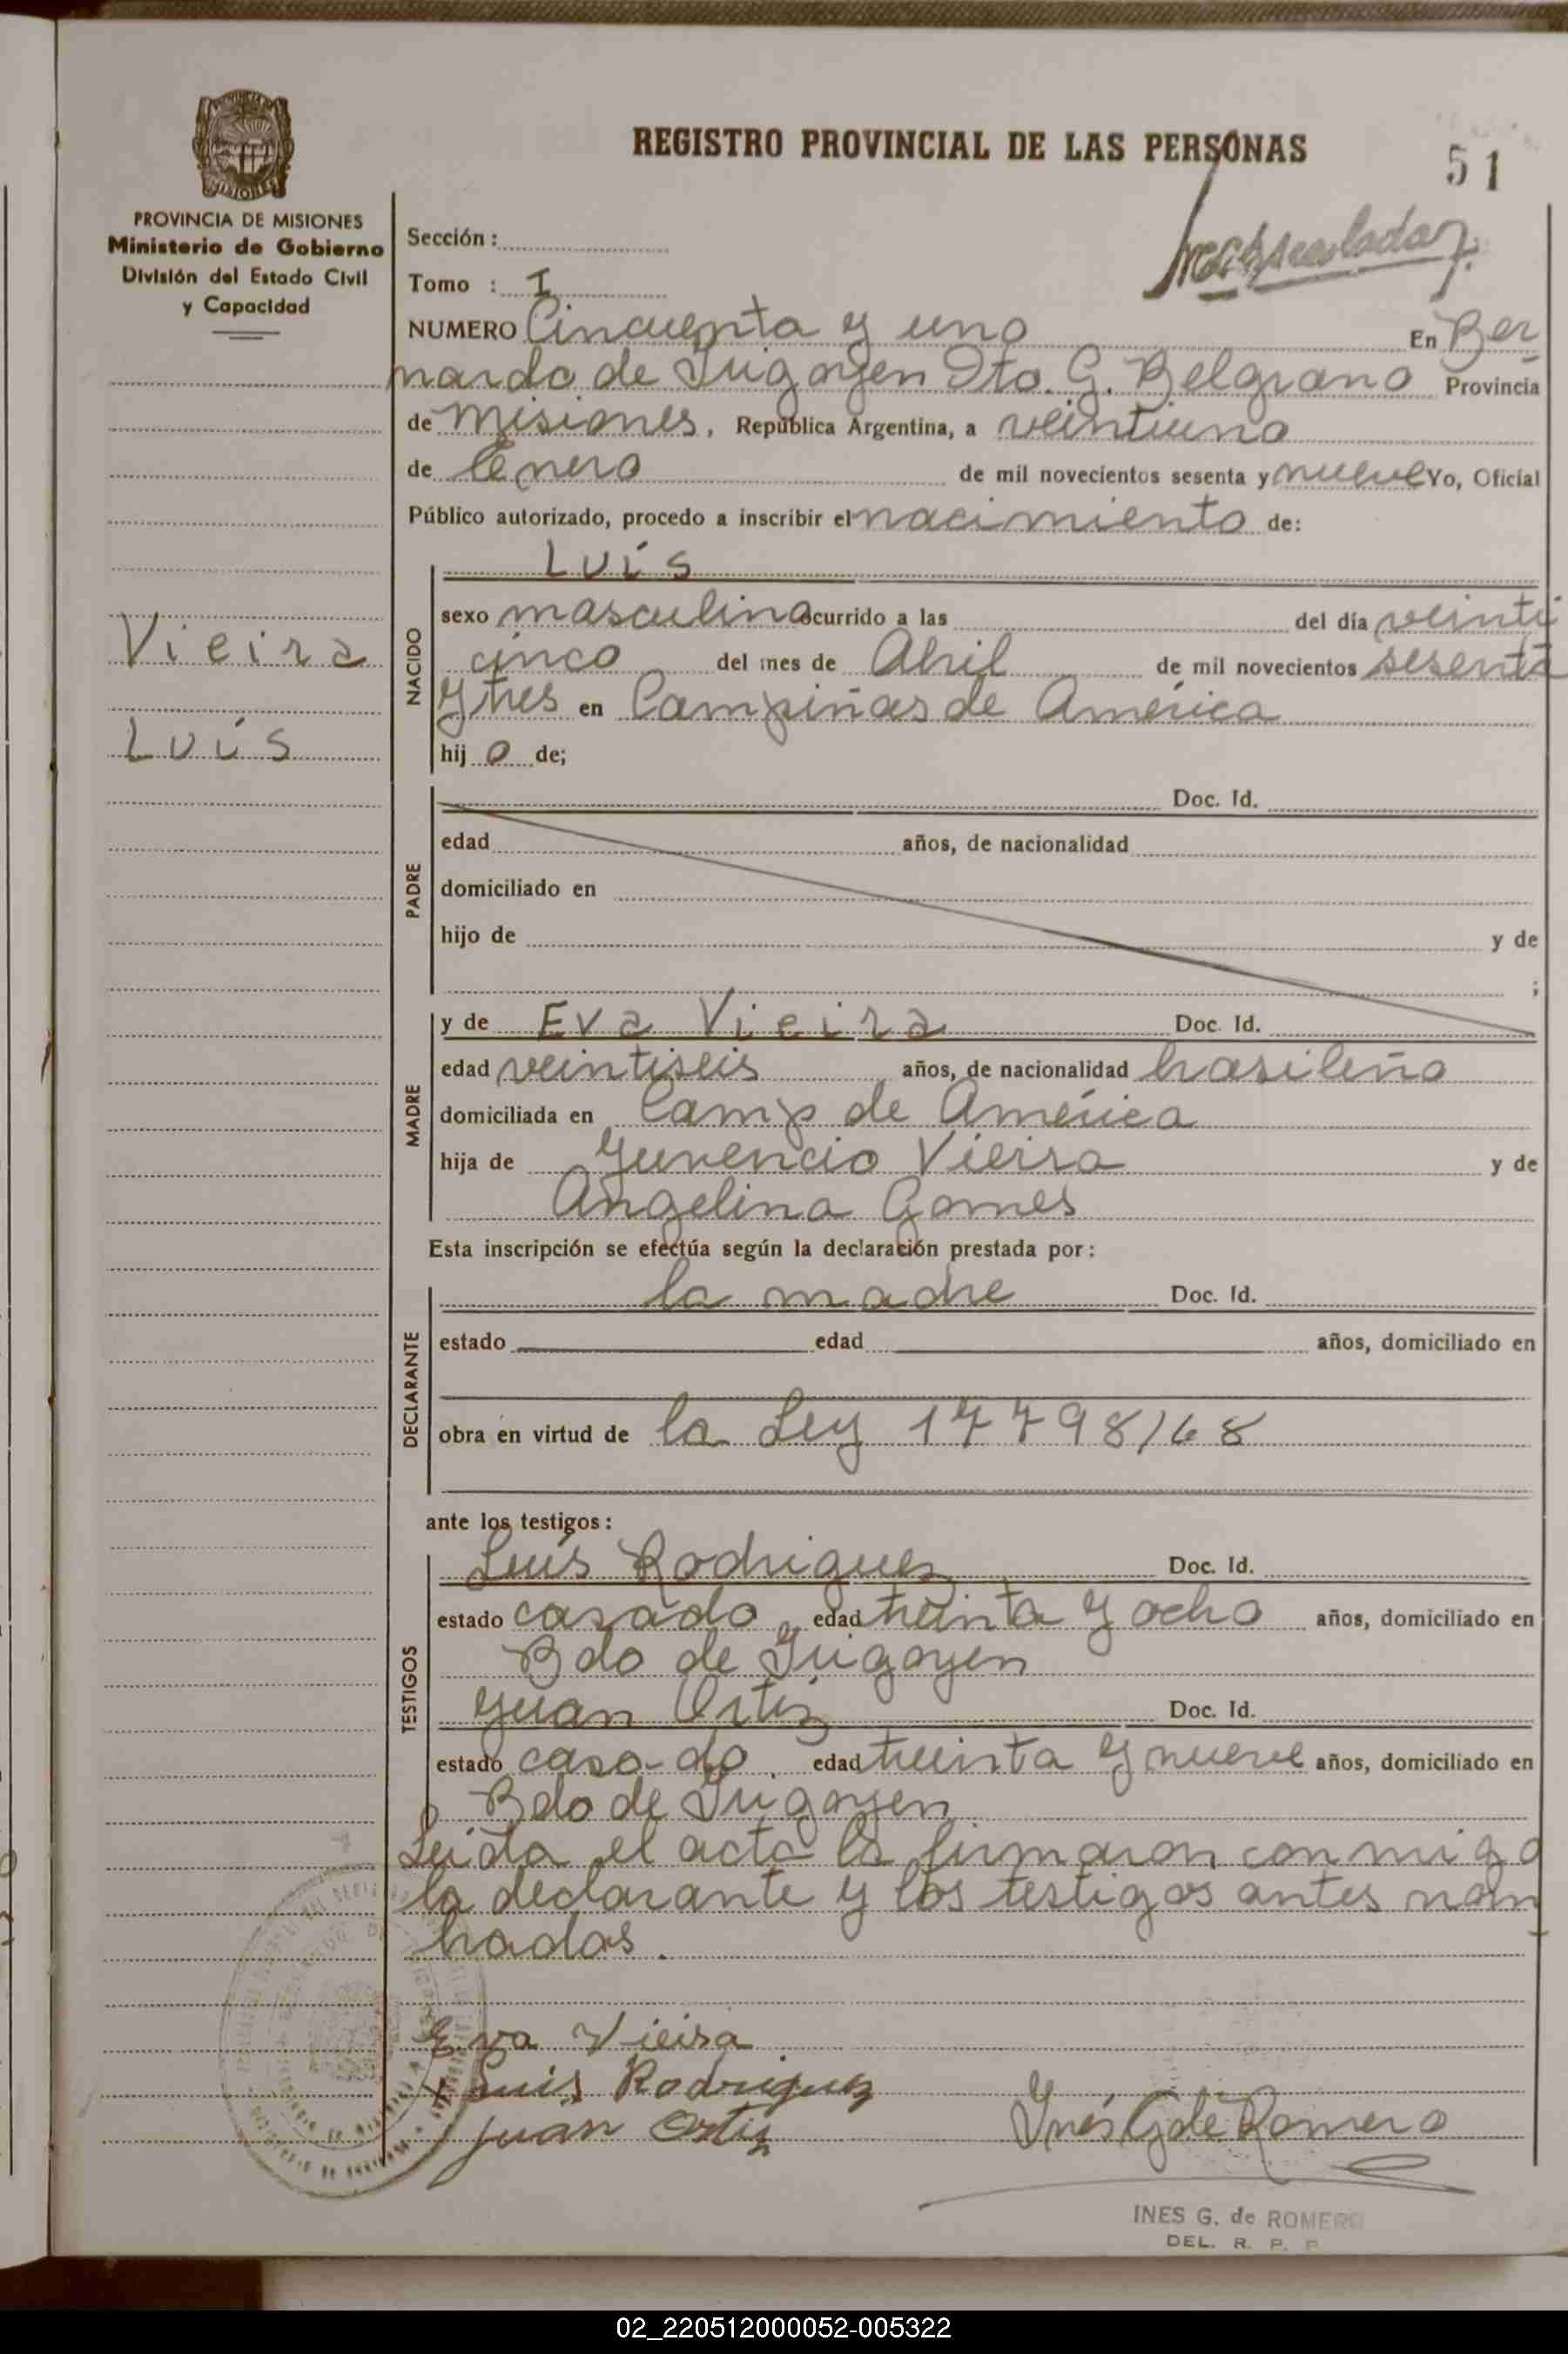 REGISTRO PROVINCIAL DE LAS PERSONAS
51
PROVINCIA DE MISIONES
Ministerio de Gobierno
División del Estado Civil
y Capacidad
Sección:
Tomo : I
NUMERO Cincuenta y uno En Ber
nardo de Irigoyen Dto. G. Belgrano Provincia
de Misiones, República Argentina, a veintiuno
de Enero de mil novecientos sesenta y nueve Yo, Oficial
Público autorizado, procedo a inscribir el nacimiento de:
NACIDO
Luís
sexo masculino ocurrido a las del día veinti
cinco del mes de Abril de mil novecientos sesenta
y tres en Campiñas de América
hij o de;
Vieira
Luís
PADRE
Doc. Id.
edad años, de nacionalidad
domiciliado en
hijo de y de
;
MADRE
y de Eva Vieira Doc. Id.
edad veintiseis años, de nacionalidad brasileña
domiciliada en Camp de América
hija de Juvencio Vieira y de
Angelina Gomes
Esta inscripción se efectúa según la declaración prestada por:
DECLARANTE
la madre Doc. Id.
estado edad años, domiciliado en
obra en virtud de la Ley 17798/68
ante los testigos:
TESTIGOS
Luís Rodriguez Doc. Id.
estado casado edad treinta y ocho años, domiciliado en
Bdo de Irigoyen
Juan Ortiz Doc. Id.
estado casado. edad treinta y nueve años, domiciliado en
Bdo de Irigoyen
Leida el acta la firmaron conmigo
la declarante y los testigos antes nom
brados.
Eva Vieira
Luis Rodriguez
Juan Ortiz
Inés G de Romero
INES G. de ROMERO
DEL. R. P. P
02_220512000052-005322